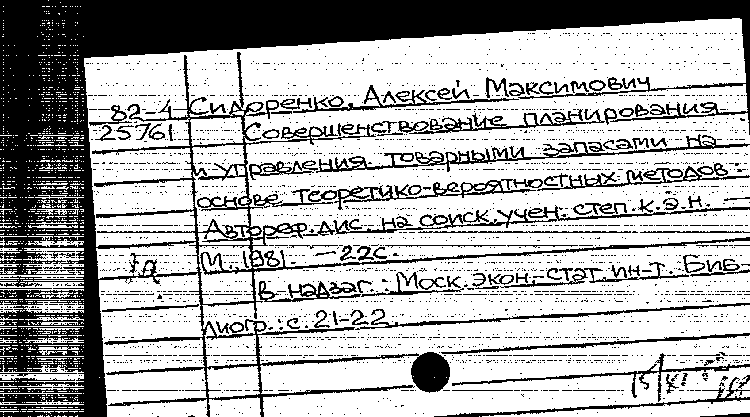 82-4 Сидоренко, Алексей Максимович
25761 Совершенствование планирования
и управления товарными запасами на
основе теоретико-вероятностных методов:
Автореф. дис. на соиск. учен. степ. к.э.н. —
М., 1981. — 22с.
В надзаг.: Моск. экон.-стат. ин-т. Биб-
лиогр.: с. 21-22.